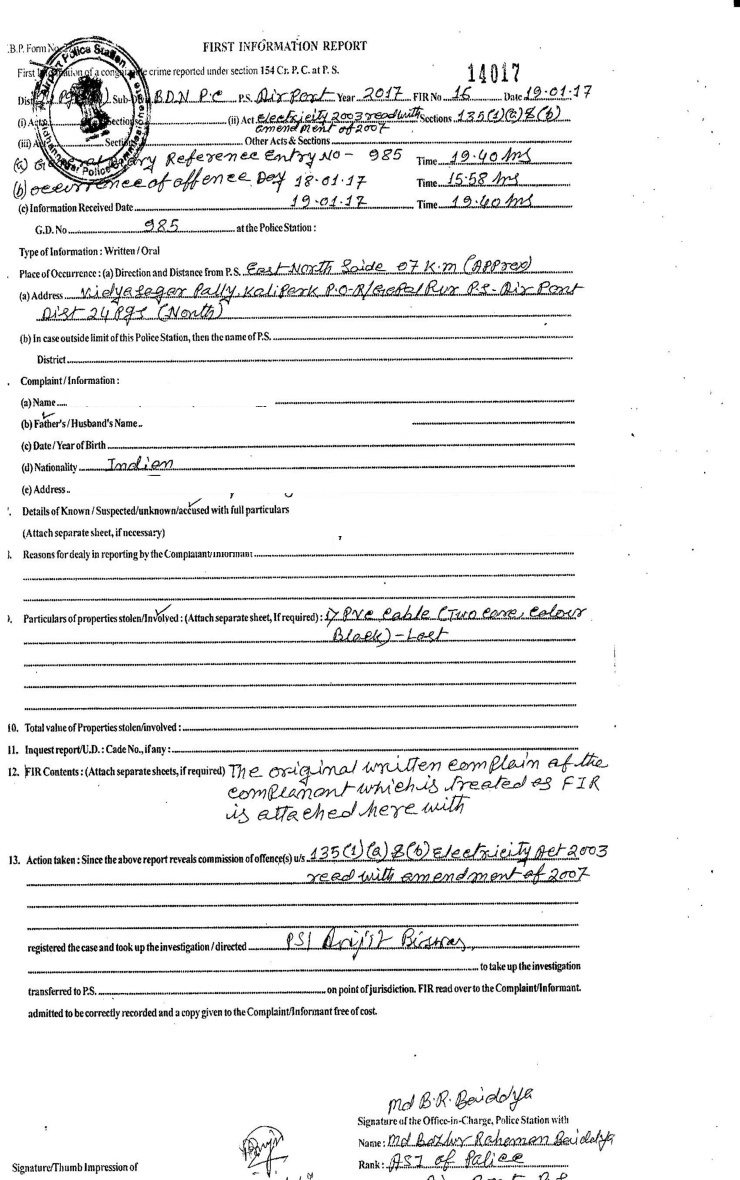 B.P. Form No.
FIRST INFORMATION REPORT
First Information of a cognizable crime reported under section 154 Cr. P. C. at P. S.
14017
Dist Sub- BDN P.C P.S. Air Port Year 2017 FIR No 16 Date 19-01-17
(i) Act Sections (ii) Act Electricity 2003 read with Sections 135(1)(a)&(b)
amendment of 2007
(iii) Act Section Other Acts & Sections
(a) General Diary Reference Entry No - 985 Time 19.40 hrs
(b) occurrence of offence Day 18-01-17 Time 15:58 hrs
(c) Information Received Date 19-01-17 Time 19.40 hrs
G.D. No 985 at the Police Station :
Type of Information : Written / Oral
Place of Occurrence : (a) Direction and Distance from P.S. East North Saide 07 K.m (APPrex)
(a) Address Vidyasagar Pally, Kalipark P.O-R/GoPalPur P.S- Air Port
Dist 24 Pgs (North)
(b) In case outside limit of this Police Station, then the name of P.S.
District
Complaint / Information :
(a) Name
(b) Father's / Husband's Name
(c) Date / Year of Birth
(d) Nationality Indian
(e) Address
Details of Known / Suspected/unknown/accused with full particulars
(Attach separate sheet, if necessary)
Reasons for dealy in reporting by the Complaiant/informant
Particulars of properties stolen/Involved : (Attach separate sheet, If required) : 1) PVC Cable (Two Core, Colour
Black) - Loet
10. Total value of Properties stolen/involved :
11. Inquest report/U.D. : Cade No., if any :
12. FIR Contents : (Attach separate sheets, if required) The original written complain of the
compleanant which is treated as FIR
is attached here with
13. Action taken : Since the above report reveals commission of offence(s) u/s 135(1)(a)&(b) Electricity Act 2003
read with amendment of 2007
registered the case and took up the investigation / directed PSI Arijit Biswas
to take up the investigation
transferred to P.S. on point of jurisdiction. FIR read over to the Complaint/Informant.
admitted to be correctly recorded and a copy given to the Complaint/Informant free of cost.
Md B.R. Baiddya
Signature of the Office-in-Charge, Police Station with
Name : Md Bazlur Raheman Baiddya
Signature/Thumb Impression of
Rank : ASI of Police